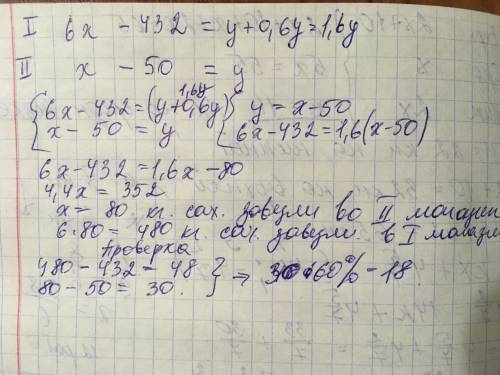 I 6x - 432 = y + 0,6y = 1,6y
II x - 50 = y
{6x - 432 = (y + 0,6y) 1,6y { y = x - 50
{x - 50 = y { 6x - 432 = 1,6(x - 50)
6x - 432 = 1,6x - 80
4,4x = 352
x = 80 кг. сах. завезли во II магазин
6·80 = 480 кг сах. завезли в I магази
Проверка
480 - 432 - 48 } ⇒ 30·60% - 18
80 - 50 = 30.